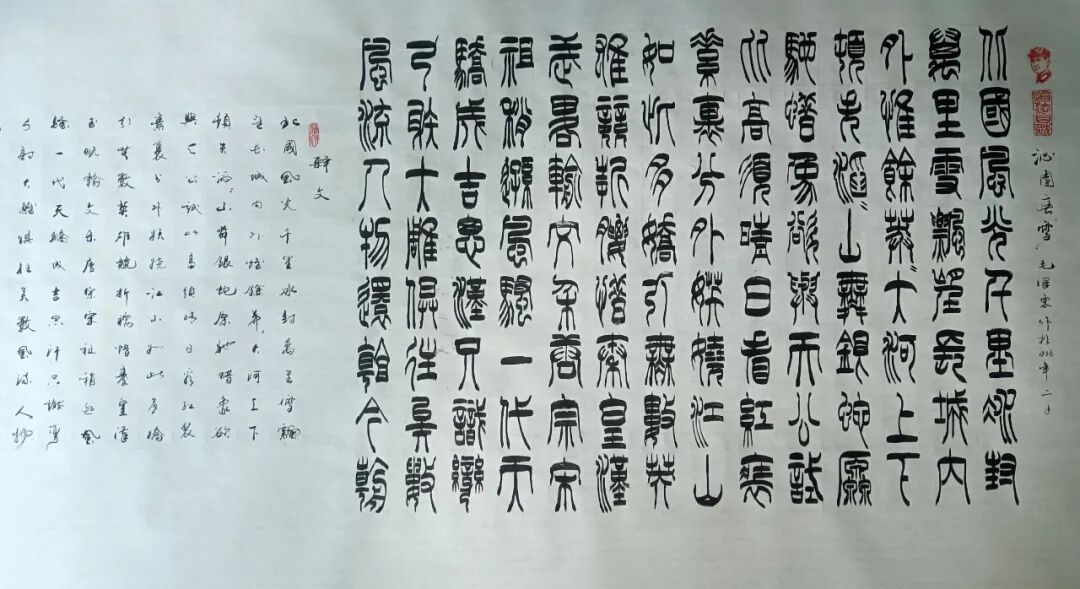 沁園春雪：毛澤東作於1936年二月
北國風光千里冰封
萬里雪飄望長城內
外惟餘莽〻大河上下
頓失滔〻山舞銀蛇原
馳蠟象欲與天公試
比高須晴日看紅裝
素裹分外妖嬈江山
如此多嬌引無數英
雄競折腰惜秦皇漢
武略輸文采唐宗宋
祖稍遜風騷一代天
驕成吉思汗只識彎
弓射大雕俱往矣數
風流人物還看今朝
釋文
北國風光千里冰封萬里雪飄
望長城内外惟餘莽〻大河上下
頓失滔〻山舞銀蛇原馳蜡象欲
與天公試比高須晴日看紅裝
素裹分外妖嬈江山如此多嬌
引無數英雄競折腰惜秦皇漢
武略輸文采唐宗宋祖稍遜風
騷一代天驕成吉思汗只識彎
弓射大雕俱往矣數風流人物